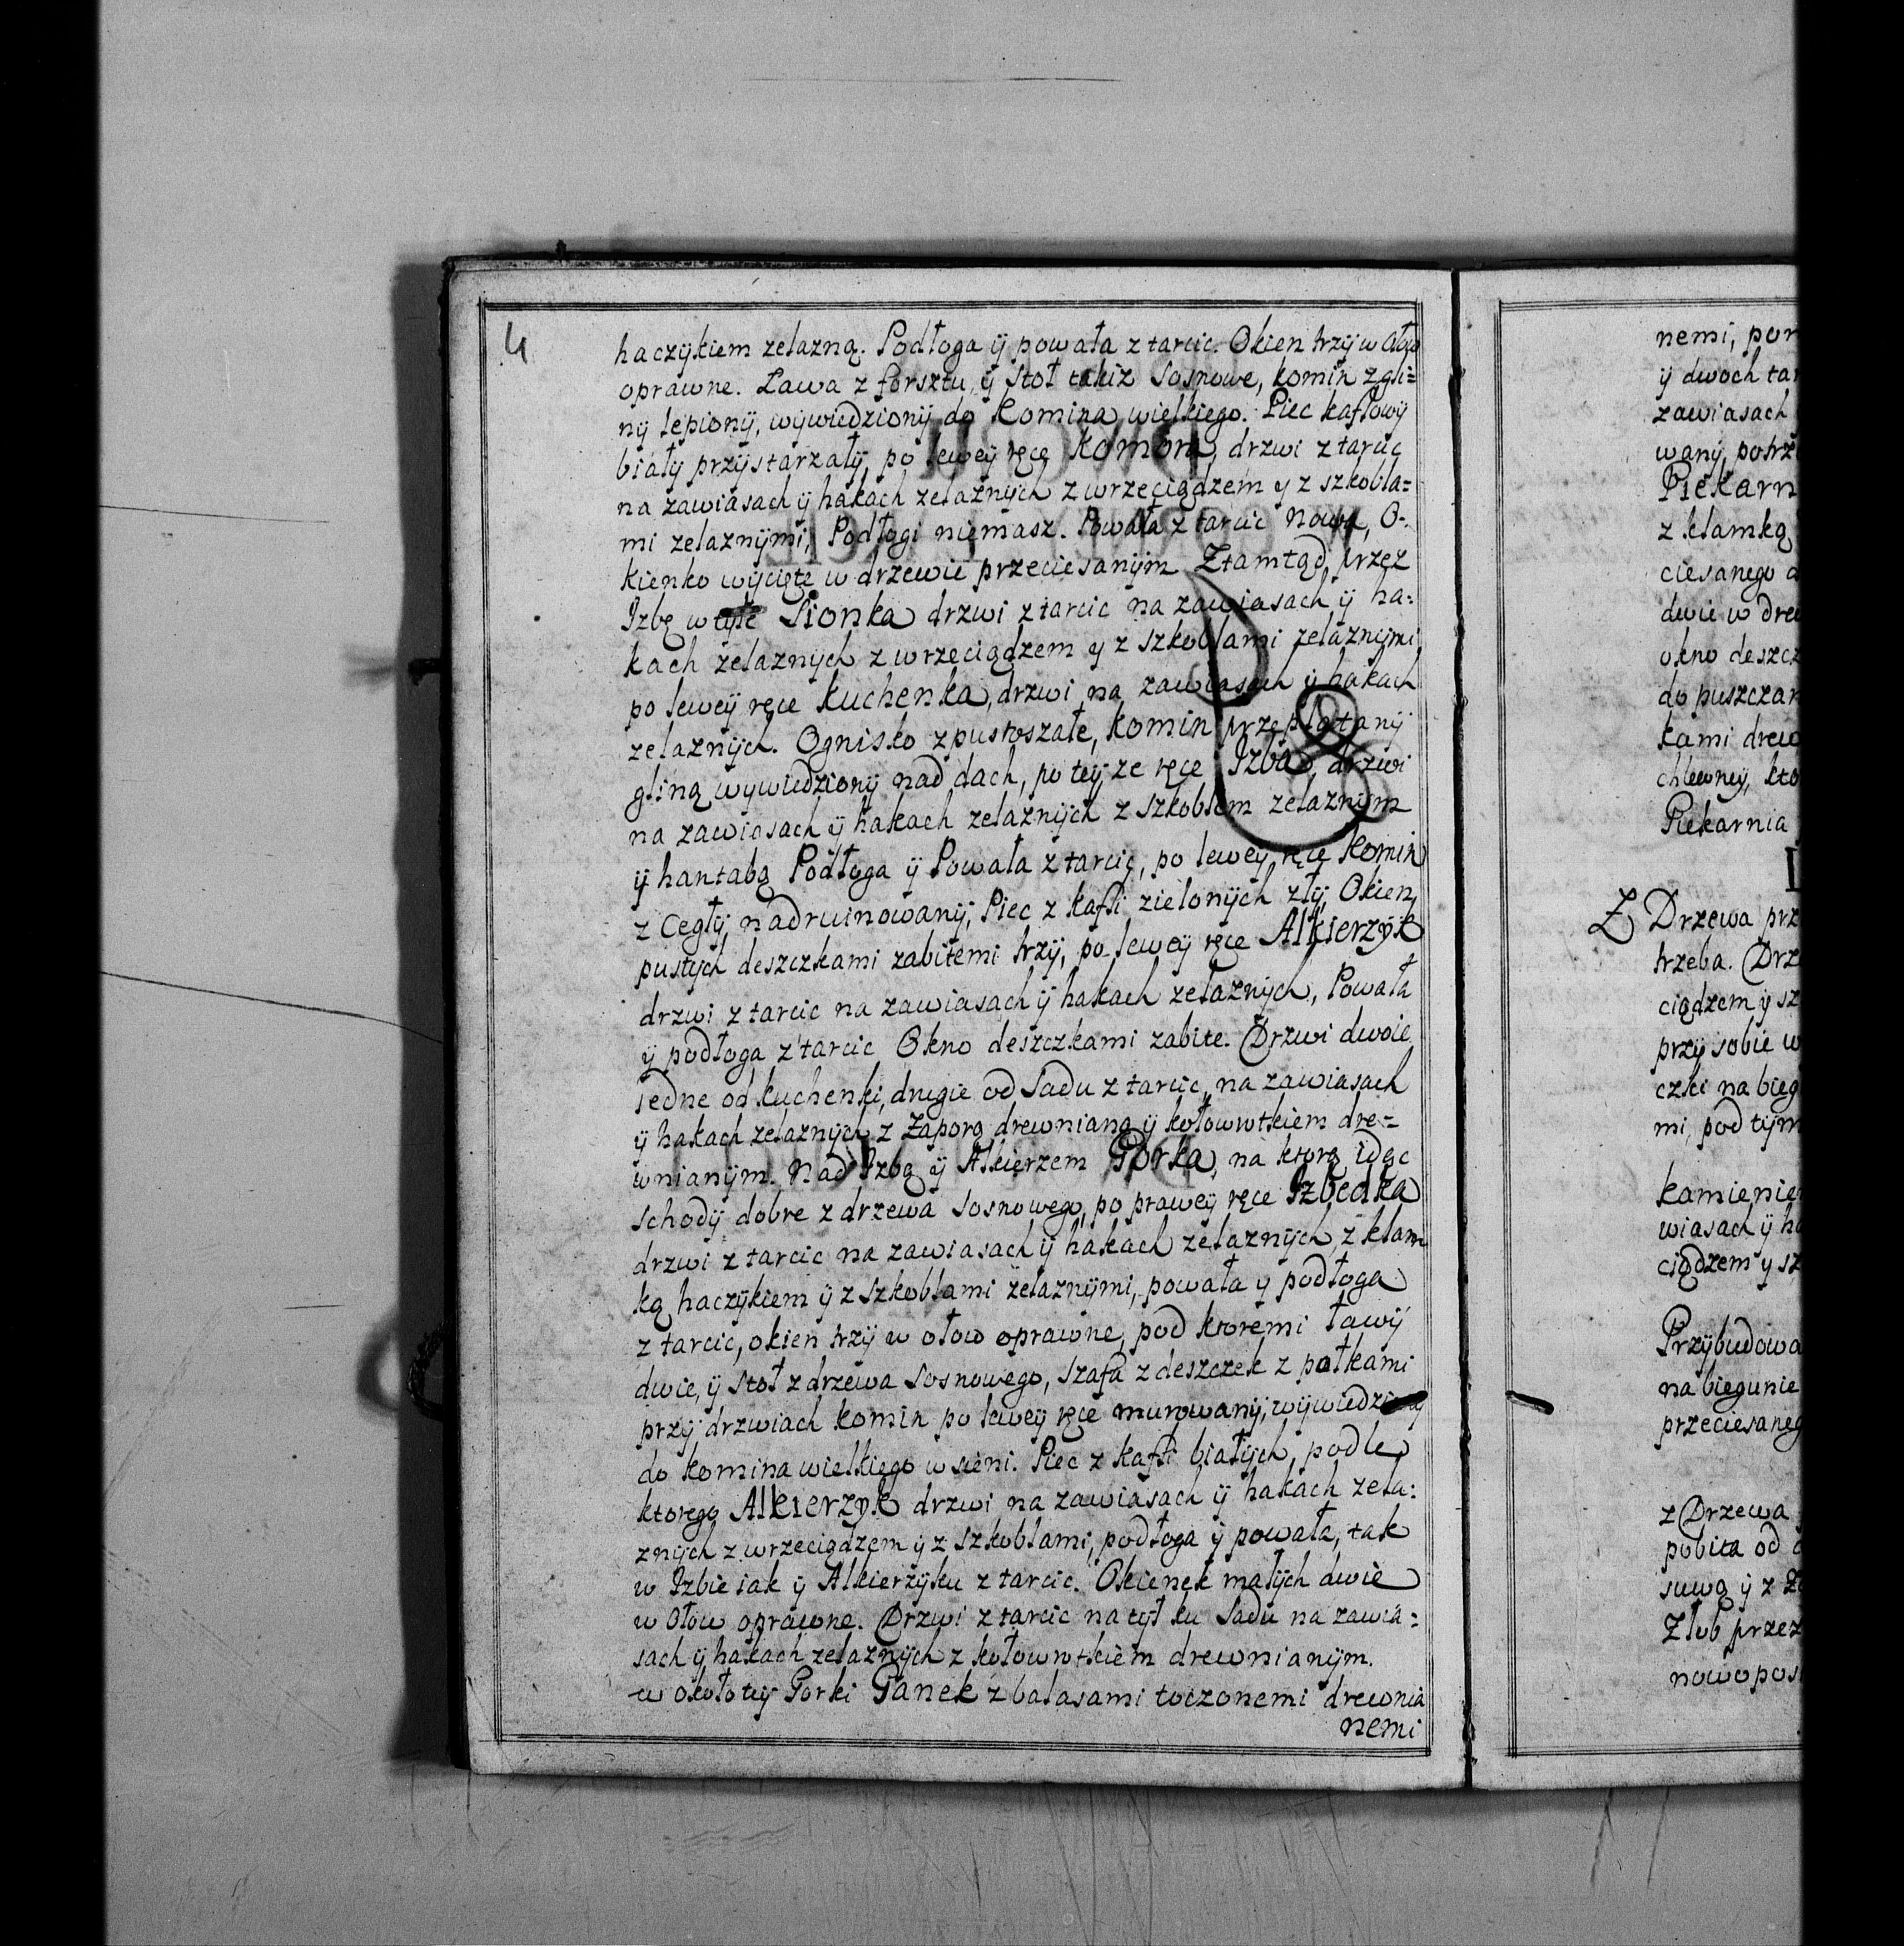 4
haczÿkiem zelazną. Podłoga ÿ powała z tarcic. Okien trzÿ w Ołow
oprawne. Ława z forsztu, ÿ Stoł takiz Sosnowe, komin z gli=
nÿ lepionÿ, wÿwiedzionÿ do Komina wielkiego. Piec kaflowÿ
białÿ przÿstarzałÿ, po lewey ręce Komora, drzwi z tarcic
na zawiasach ÿ hakach zelaznÿch z wrzeciądzem y z szkobla=
mi zelaznÿmi, Podłogi niemasz. Powała z tarcic Nowa, O-
kienko wÿcięte w drzewie przeciesanÿm Ztamtąd przez
Izbę w tyle Sionka drzwi z tarcic na zawiasach ÿ ha=
kach zelaznÿch z wrzeciądzem y z szkoblami zelaznÿmi
po lewey ręce Kuchenka, drzwi na zawiasach ÿ hakach
zelaznÿch. Ognisko zpustoszałe, Komin przeplatanÿ
gliną wywiedzionÿ nad dach, po teÿ ze ręce Izba, drzwi
na zawiasach ÿ hakach zelaznÿch z szkoblem zelaznÿm
ÿ hantabą Podłoga ÿ Powała z tarcic, po lewey ręce Komin
z Cegłÿ nadruinowanÿ, Piec z kafli zielonÿch złÿ, Okien
pustÿch deszczkami zabitemi trzÿ, po lewey ręce Alkierzyk
drzwi z tarcic na zawiasach ÿ hakach zelaznÿch, Powała
ÿ podłoga z tarcic Okno deszczkami zabite. Drzwi dwoie
iedne od kuchenki, drugie od Sadu z tarcic, na zawiasach
ÿ hakach zelaznÿch z Zaporą drewnianą ÿ kołowrotkiem dre=
wnianÿm. Nad Izbą ÿ Alkierzem Gorka, na ktorą idąc
Schodÿ dobre z drzewa Sosnowego, po prawey ręce Izbedka
drzwi z tarcic na zawiasach ÿ hakach zelaznÿch, z klam
ką haczÿkiem ÿ z szkoblami zelaznÿmi, powała y podłoga
z tarcic, okien trzÿ w ołow oprawne, pod ktoremi ławÿ
dwie, ÿ Stoł z drzewa Sosnowego, szafa z deszczek z połkami
przÿ drzwiach komin po lewey ręce murowanÿ, wÿwiedziony
do Komina wielkiego w sieni. Piec z Kafli białÿch, podle
ktorego Alkierzyk drzwi na zawiasach ÿ hakach zela=
znÿch z wrzeciądzem ÿ z szkoblami, podłoga ÿ powała, tak
w Izbie iak ÿ Alkierzÿku z tarcic. Okienek małÿch dwie
w Ołow oprawne. Drzwi z tarcic na tÿł ku Sadu na zawia=
sach ÿ hakach zelaznÿch z kołowrotkiem drewnianÿm.
w około teÿ Gorki Ganek z balasami toczonemi drewnia
nemi
nemi, por
ÿ dwoch tar
zawiasach
wanÿ, potrze
Piekarn
z klamką
ciesanego
dwie w drew
okno deszcz
do puszczan
kami drew
chlewneÿ, kto
Piekarnia
Z Drzewa prz
trzeba. Drz
ciądzem ÿ sz
przÿ sobie w
czki na bieg
mi, pod tÿm
kamienie
wiasach ÿ ha
ciądzem y sz
Przÿbudowa
na biegunie
przeciesaneg
z Drzewa
pobita od
suwą ÿ z Za
Złob przez
nowo pos